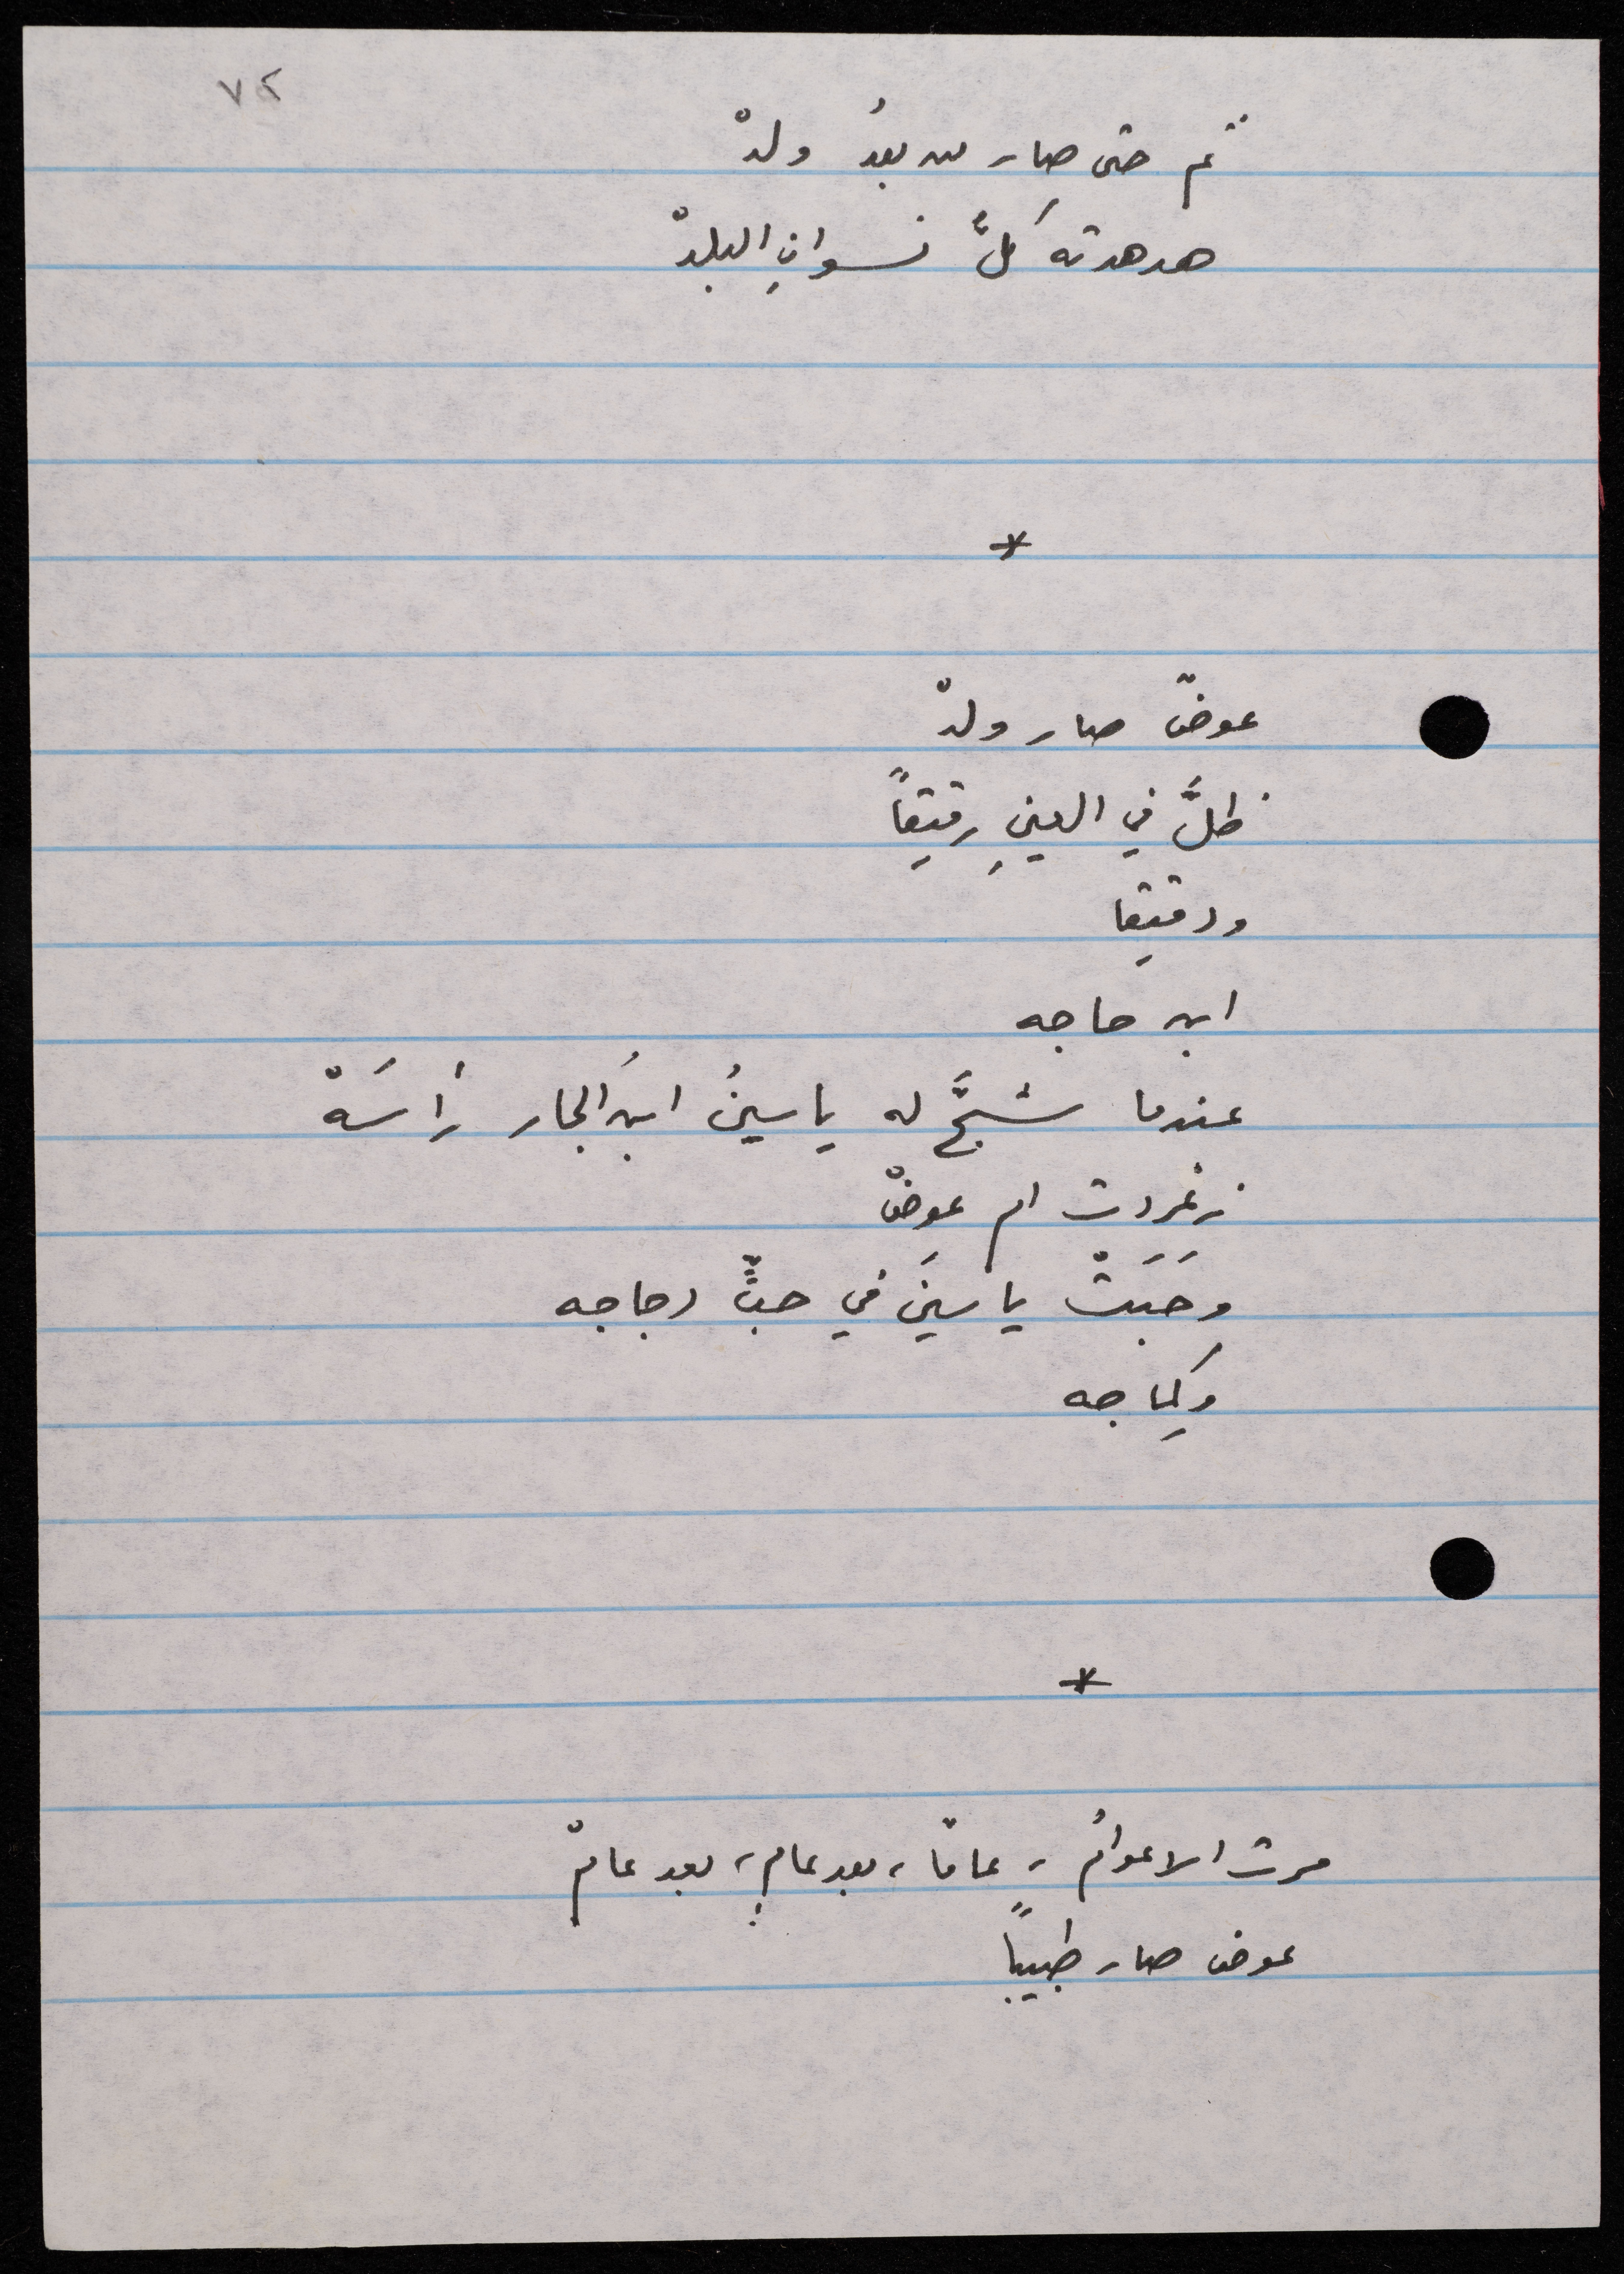 ٧٢
ثم حتى صار من بعدُ ولدْ
هدهدته كلُّ نسوانِ البلدْ
*
عوضٌ صار ولدْ
ظلَّ في العينِ رقيقاً
ودقيقا
ابن حاجه
عندما شجَّ له ياسينُ ابنُ الجار رأسَهْ
زغردت ام عوضْ
وحَبَتْ ياسينَ في حبٍّ دجاجه
وكِماجه
*
مرت الاعوامُ، عامًا، بعد عامٍ، بعد عامْ
عوض صار طبيباً